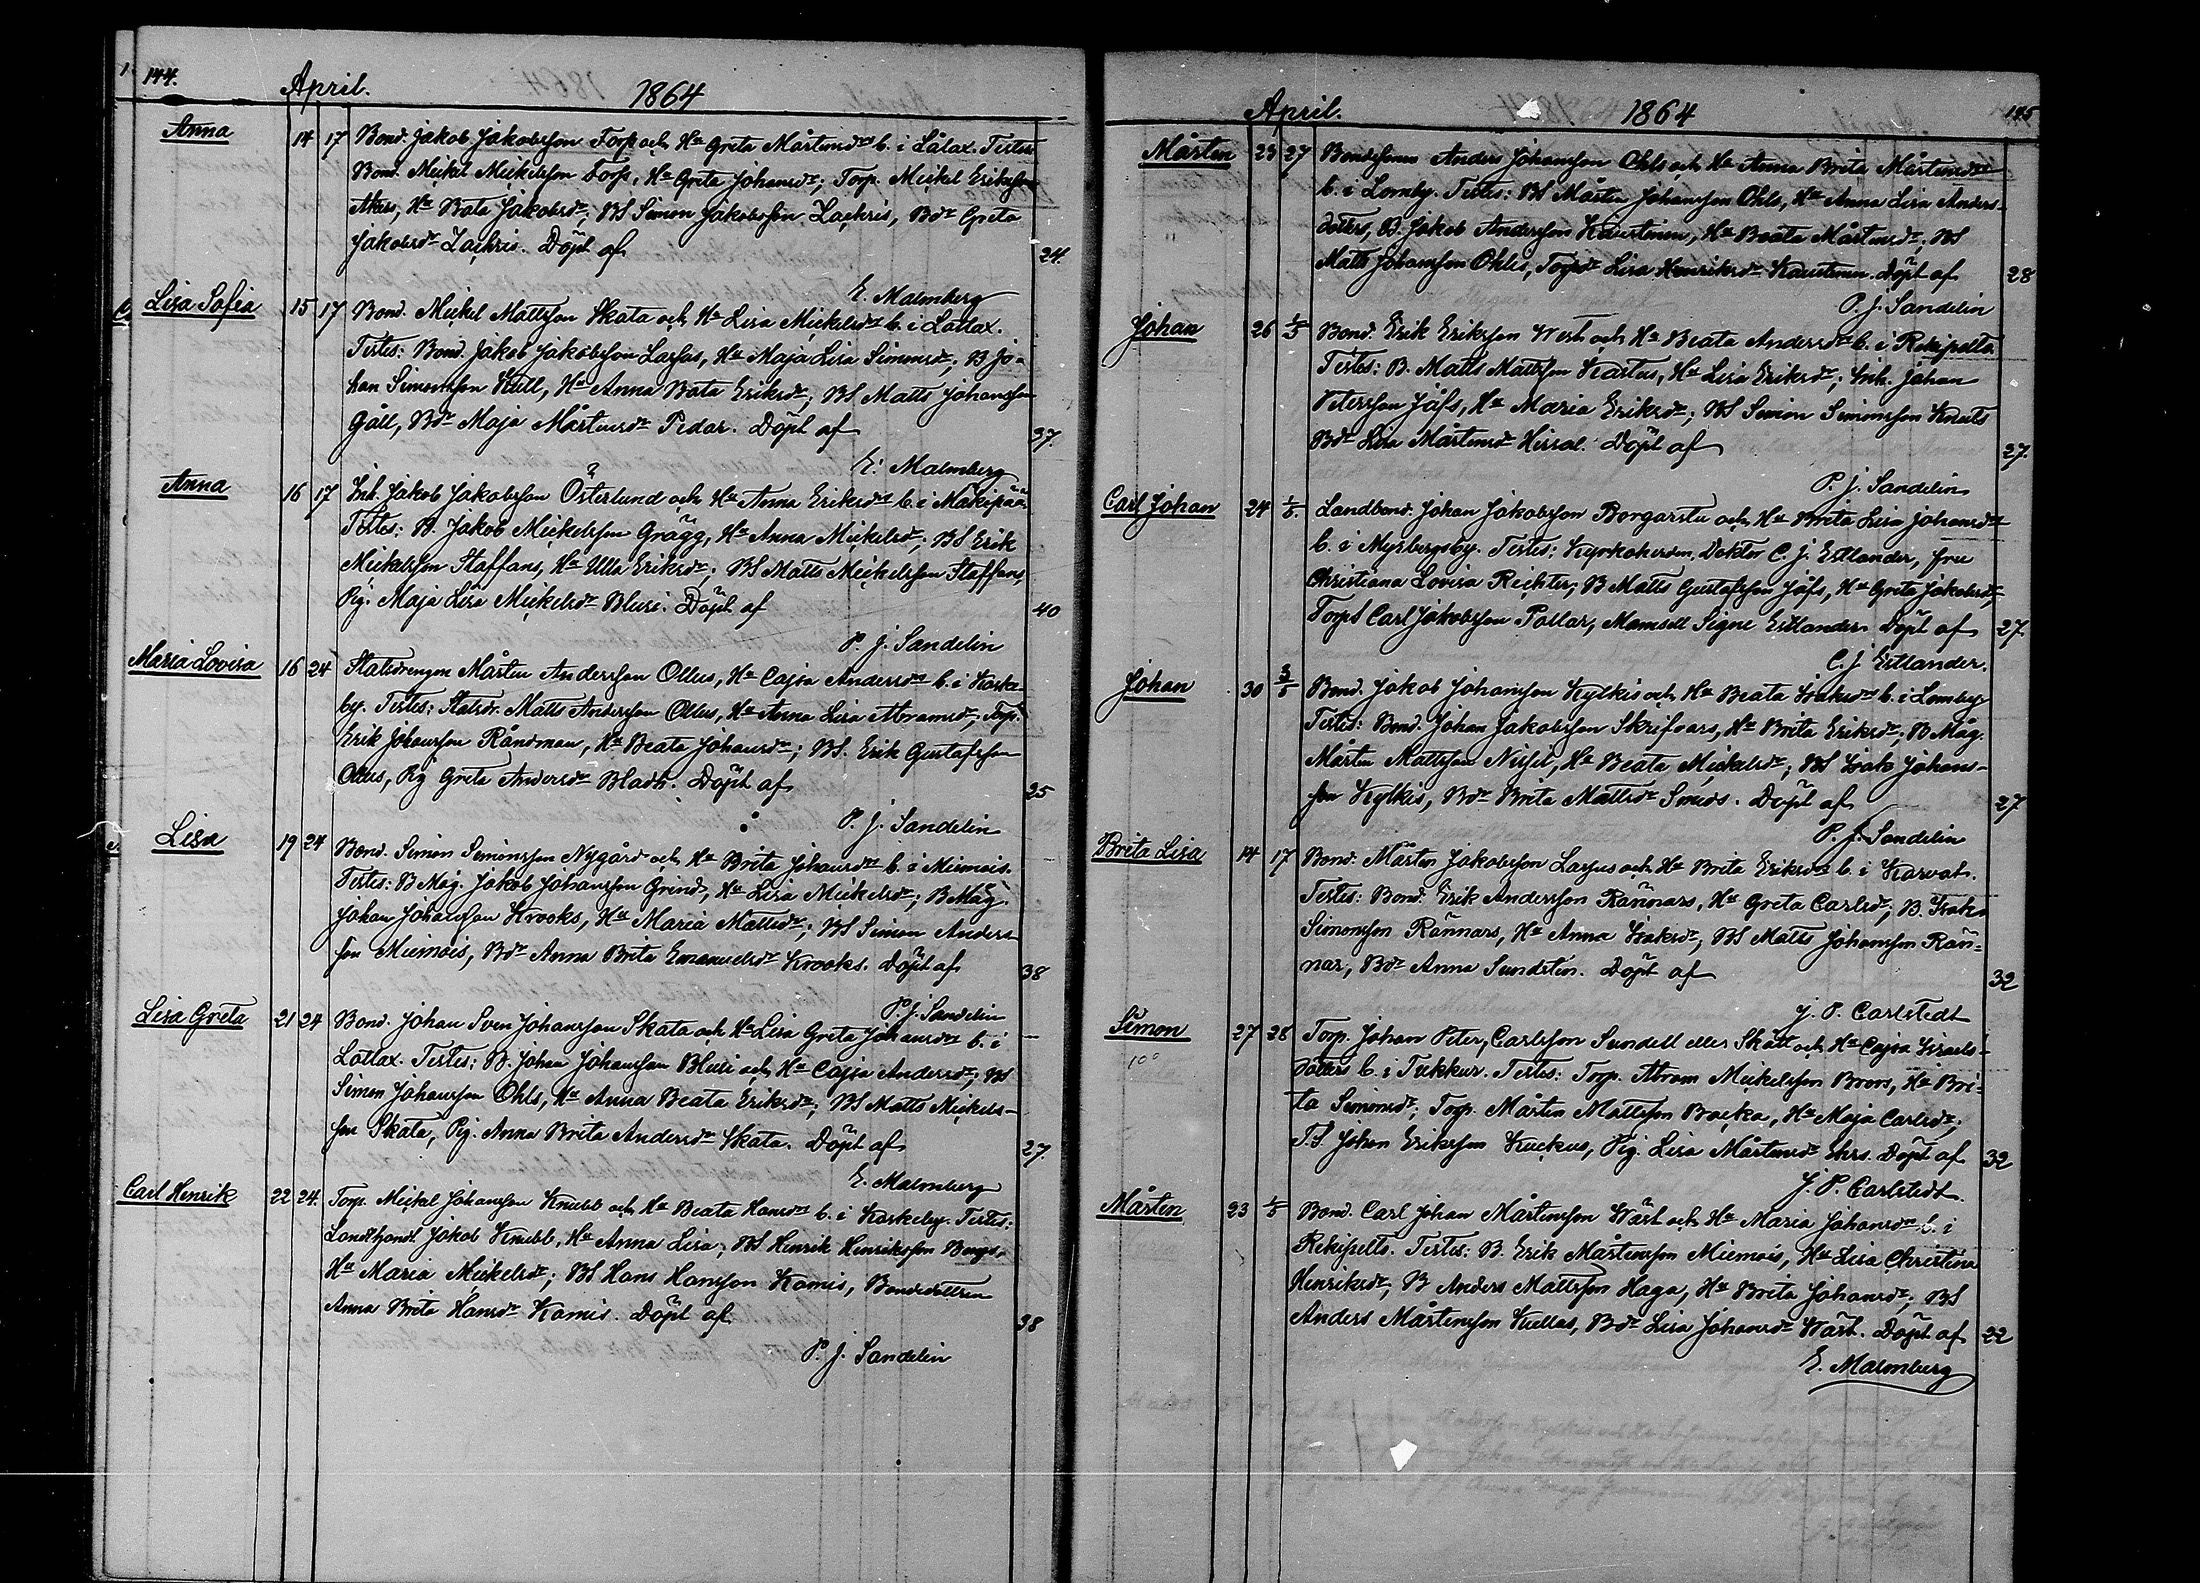 144.
April. 1864
Anna 14 17 Bond. Jakob Jakobsson Torp och Hu Greta Mårtensdr b. i Låtax. Testes
Bond. Mickel Mickelsson Torp, Hu Greta Johansdr; Torp. Mickel Eriksson
Åkers, Hu Bata Jakobsdr; BS Simon Jakobsson Zachris, Bdr Greta
Jakobsdr Zachris. Döpt af 24.
E. Malmberg
Lisa Sofia 15 17 Bond. Mickel Mattsson Skata och Hu Lisa Mickelsdr b. i Lottax.
Testes: Bond. Jakob Jakobsson Lassas, Hu Maja Lisa Simonsdr; B Jo-
han Simonsson Kull, Hu Anna Bata Eriksdr; BS Matts Johansson
Gåll, Bdr Maja Mårtensdr Pedar. Döpt af 37.
E. Malmberg
Anna 16 17 Inh. Jakob Jakobsson Österlund och Hu Anna Eriksdr b. i Måkipää
Testes: B. Jakob Mickelsson Grägg, Hu Anna Mickelsdr; BS Erik
Mickelsson Staffans, Hu Ulla Eriksdr; BS Matts Mickelsson Staffans,
Pig. Maja Lisa Mickelsdr Blusi. Döpt af 40
P. J. Sandelin
Maria Lovisa 16 24 Statsdrengen Mårten Andersson Ollus, Hu Cajsa Andersdr b. i Karke-
by. Testes: Statsdr. Matts Andersson Ollus, Hu Anna Lisa Abramsdr; Torp.
Erik Johansson Råndman, Hu Beata Johansdr; BS. Erik Gustafsson
Ollus, Pig Greta Andersdr Bladh. Döpt af 25
P. J. Sandelin
Lisa 19 24 Bond. Simon Simonsson Nygård och Hu Brita Johansdr b. i Miemois.
Testes: B Måg. Jakob Johansson Grind, Hu Lisa Mickelsdr; B Måg.
Johan Johansson Krooks, Hu Maria Mattsdr; BS Simon Anders-
son Miemois, Bdr Anna Brita Emanuelsdr Krooks. Döpt af 38
P. J. Sandelin
Lisa Greta 21 24 Bond. Johan Sven Johansson Skata och Hu Lisa Greta Johansdr b. i
Lottax. Testes: B. Johan Johansson Blusi och Hu Cajsa Andersdr; BS
Simon Johansson Ohls, Hu Anna Beata Eriksdr; BS Matts Mickels-
son Skata, Pig. Anna Brita Andersdr Skata. Döpt af 27.
E. Malmberg
Carl Henrik 22 24. Torp. Mickel Johansson Knubb och Hu Beata Hansdr b. i Karkeby. Testes:
Jakob Knubb, Hu Anna Lisa; BS Henrik Henriksson
Hu Maria Mickelsdr; BS Hans Hansson Komis, Bondedottren
Anna Brita Hansdr Komis. Döpt af 38
P. J. Sandelin
April. 1864 145
Mårten 23 27 Bondesonen Anders Johansson Ohls och Hu Anna Brita Mårtensdr
b. i Lomby. Testes: BS Mårten Johansson Ohls, Hu Anna Lisa Anders-
dotter, B. Jakob Andersson Kaustinen, Hu Beata Mårtensdr; BS
Matts Johansson Ohls, Torpdr Lisa Henriksdr Kaustinen. Döpt af 28
P. J. Sandelin
Johan 26 1/5 Bond. Erik Eriksson West och Hu Beata Andersdr b. i Rekipelto
Testes: B. Matts Mattsson Kastus, Hu Lisa Eriksdr; Inh. Johan
Petersson Jåfs, Hu Maria Eriksdr; BS Simon Simonsson Knuts
Bdr Lisa Mårtensdr Hirsal. Döpt af 27.
P. J. Sandelin
Carl Johan 24 1/5. Landbond. Johan Jakobsson Borgarstu och Hu Brita Lisa Johansdr
b. i Myrbergsby. Testes: Kyrkoherden, Doktor C. J. Estlander, fru
Christiana Lovisa Richter; B Matts Gustafsson Jåfs, Hu Greta Jakobsdr;
TorpS Carl Jakobsson Pollar, Mamsell Signe Estlander. Döpt af 27
C. J. Estlander.
Johan 30 3/5 Bond. Jakob Johansson Kylkis och Hu Beata Isaksdr b. i Lomby
Testes: Bond. Johan Jakobsson Skrifvars, Hu Brita Eriksdr; B Måg.
Mårten Mattsson Nissil, Hu Beata Mickelsdr; BS Isak Johans-
son Kylkis, Bdr Brita Mattsdr Smeds. Döpt af 27
P. J. Sandelin
Brita Lisa 14 17 Bond. Mårten Jakobsson Lassus och Hu Brita Eriksdr b. i Karvat.
Testes: Bond. Erik Andersson Rännars, Hu Greta Carlsdr; B. Isak
Simonsson Rännars, Hu Anna Isaksdr; BS Matts Johansson Rän-
nar, Bdr Anna Sundelin. Döpt af 32
J. P. Carlstedt
Simon 27 28 Torp. Johan Peter, Carlsson Sundell eller Skått och Hu Cajsa Israels-
dotter b. i Tukkur. Testes: Torp. Abram Mickelsson Broors, Hu Bri-
ta Simonsdr; Torp. Mårten Mattsson Backa, Hu Maja Carlsdr;
TS. Johan Eriksson Kuckus, Pig. Lisa Mårtensdr Ehrs. Döpt af 32
J. P. Carlstedt.
Mårten 23 1/5 Bond. Carl Johan Mårtensson Wärt och Hu Maria Johansdr b. i
Rekipelto. Testes: B. Erik Mårtensson Miemois, Hu Lisa Christina
Henriksdr; B Anders Mattsson Haga, Hu Brita Johansdr; BS
Anders Mårtensson Kullas, Bdr Lisa Johansdr Wärt. Döpt af 22
E. Malmberg